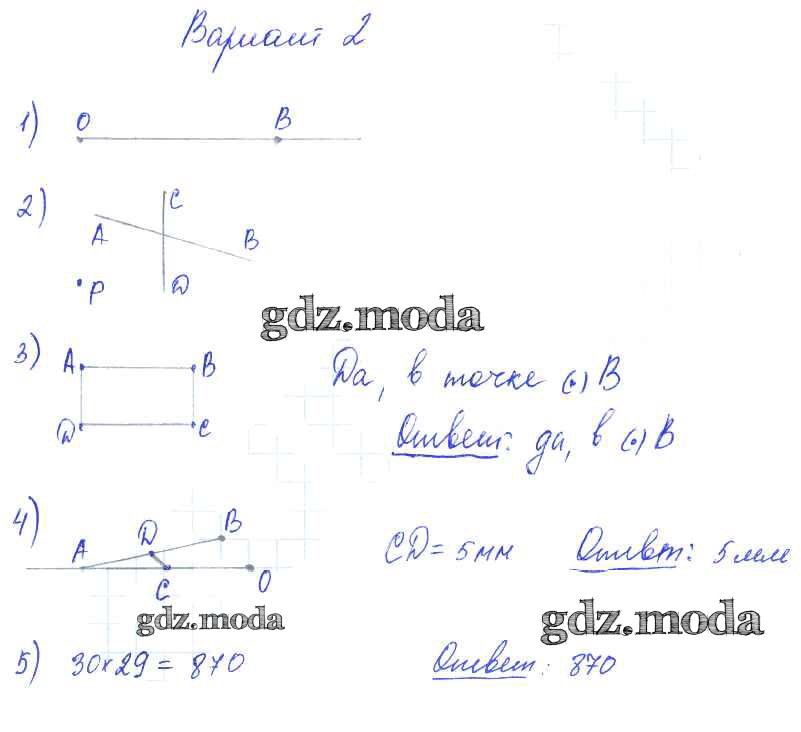 Вариант 2
1) O B
2) A C B D P
gdz.moda
3) A B D C Да, в точке (•) B
Ответ: да, в (•) B
4) A D B C O CD = 5 мм Ответ: 5 мм
gdz.moda gdz.moda
5) 30×29 = 870 Ответ: 870